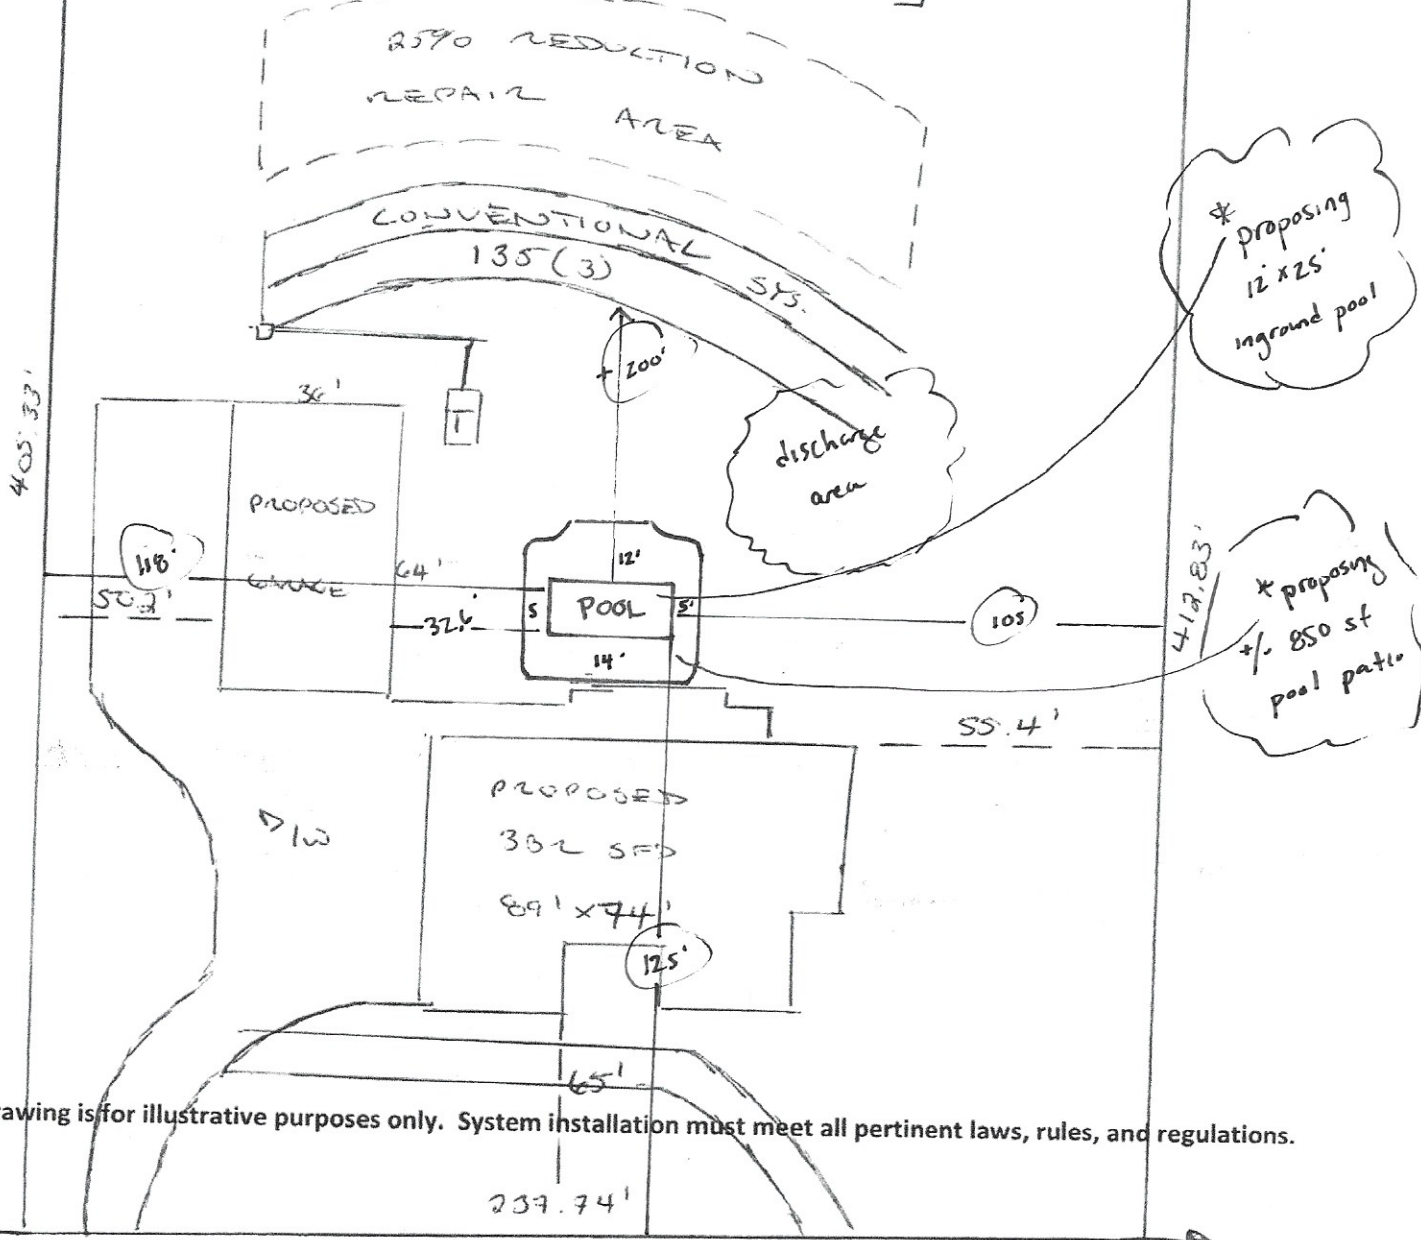 25% REDUCTION
REPAIR AREA
CONVENTIONAL SYS.
135 (3)
* proposing
12' x 25'
inground pool
+ 200'
36'
T
405.33'
discharge
area
PROPOSED
GARAGE
118'
64'
50.2'
32.6'
12'
5
POOL
5'
14'
105'
412.83'
* proposing
+/- 850 sf
pool patio
55.4'
PROPOSED
3BR SFD
89' x 74'
D/W
125'
65'
rawing is for illustrative purposes only. System installation must meet all pertinent laws, rules, and regulations.
237.74'